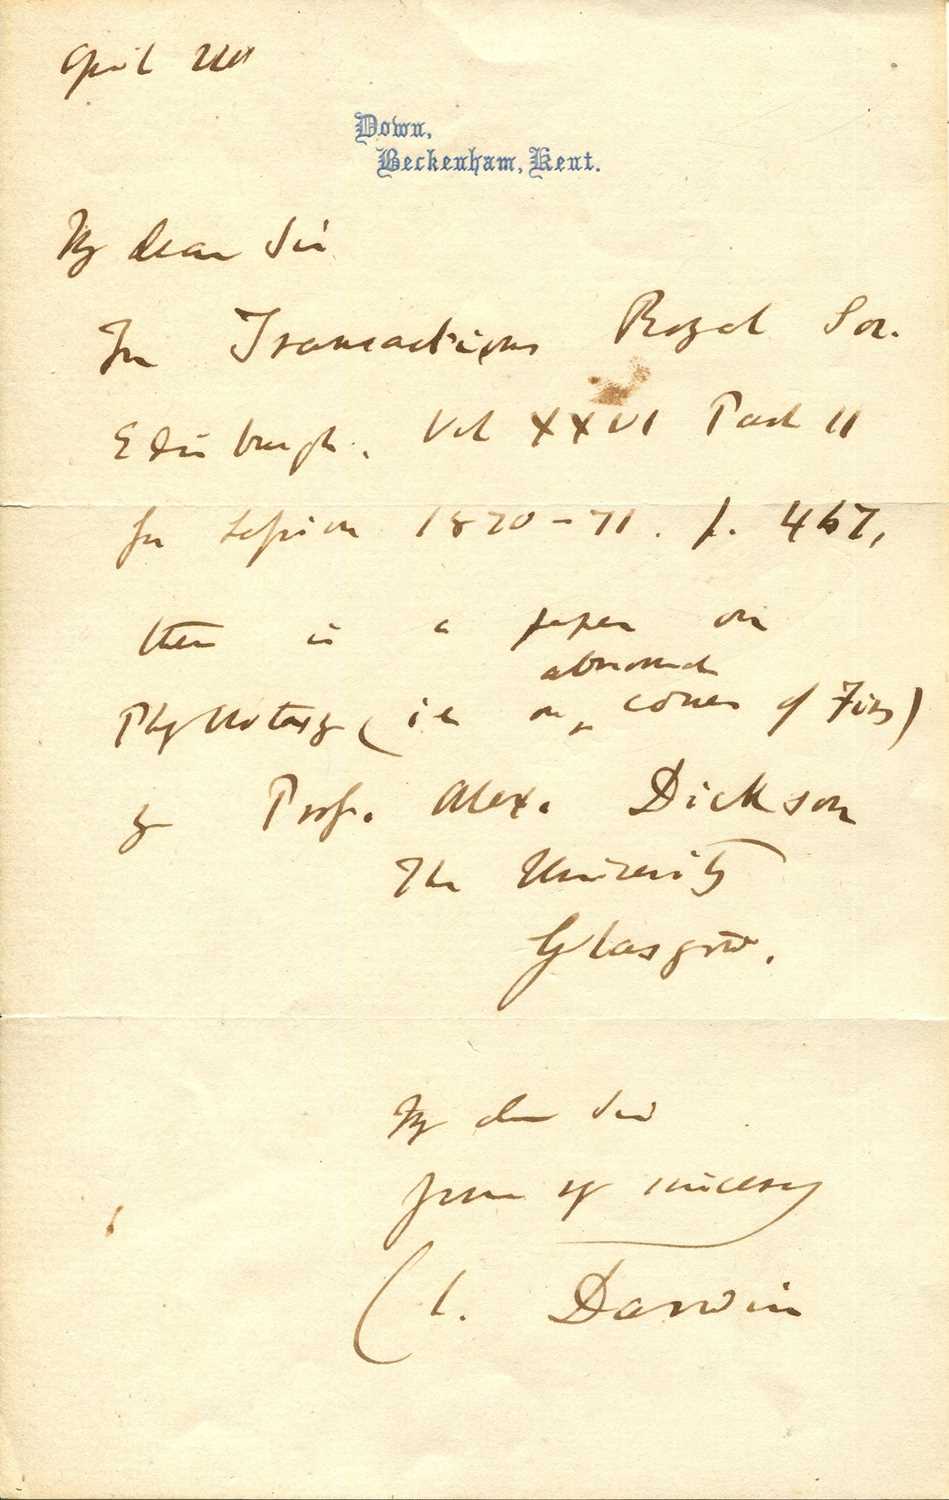 April 21st
Down,
Beckenham, Kent.
My dear Sir
In Transactions Royal Soc.
Edinburgh. Vol XXVI Part II
for Session 1870–71. p. 467,
there is a paper on
abnormal
Phyllotaxy (i e on ‸ cones of Firs)
by Prof. Alex. Dickson
The University
Glasgow.
My dear Sir
yours very sincerely
Ch. Darwin